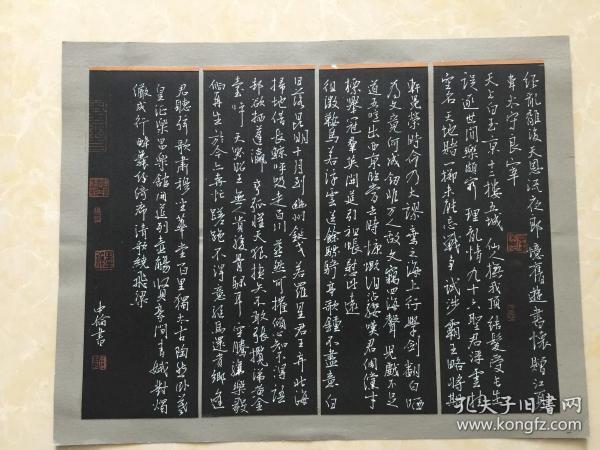 经亂離後天恩流夜郎憶舊遊書懷贈江夏
韋太守良宰
天上白玉京十二樓五城仙人撫我頂結髮受長生
誤逐世間樂頗窮理亂情九十六聖君浮雲挂
空名天地賭一擲未能忘戰爭試涉霸王略將期
軒冕榮時命乃大謬棄之海上行學劍翻自哂
為文竟何成劍非万人敵文竊四海聲兒戲不足
道五噫出西京臨當去時慷慨泪沾纓嘆君倜儻才
標舉冠羣英開筵引祖帳慰此遠
徂徵鞍馬若浮雲送餘驃騎亭歌鍾不盡意白
日落昆明十月到幽州戈鋋若羅星君王弃北海
掃地借長鯨呼吸走百川燕然可摧傾心知不得語
却欲栖蓬瀛弯弧懼天狼挾矢不敢張攬涕黄金
臺呼天哭昭王無人貴駿骨騄耳空騰驤樂毅
倘再生於今亦奔亡蹉跎不得意驅馬還貴鄉逢
君聽弦歌肅穆坐華堂百里獨太古陶然卧羲
皇徵樂昌樂館開筵列壺觴賢豪間青娥對燭
儼成行醉舞紛綺席清歌繞飛梁
孔夫子旧书网
www.kongfz.com